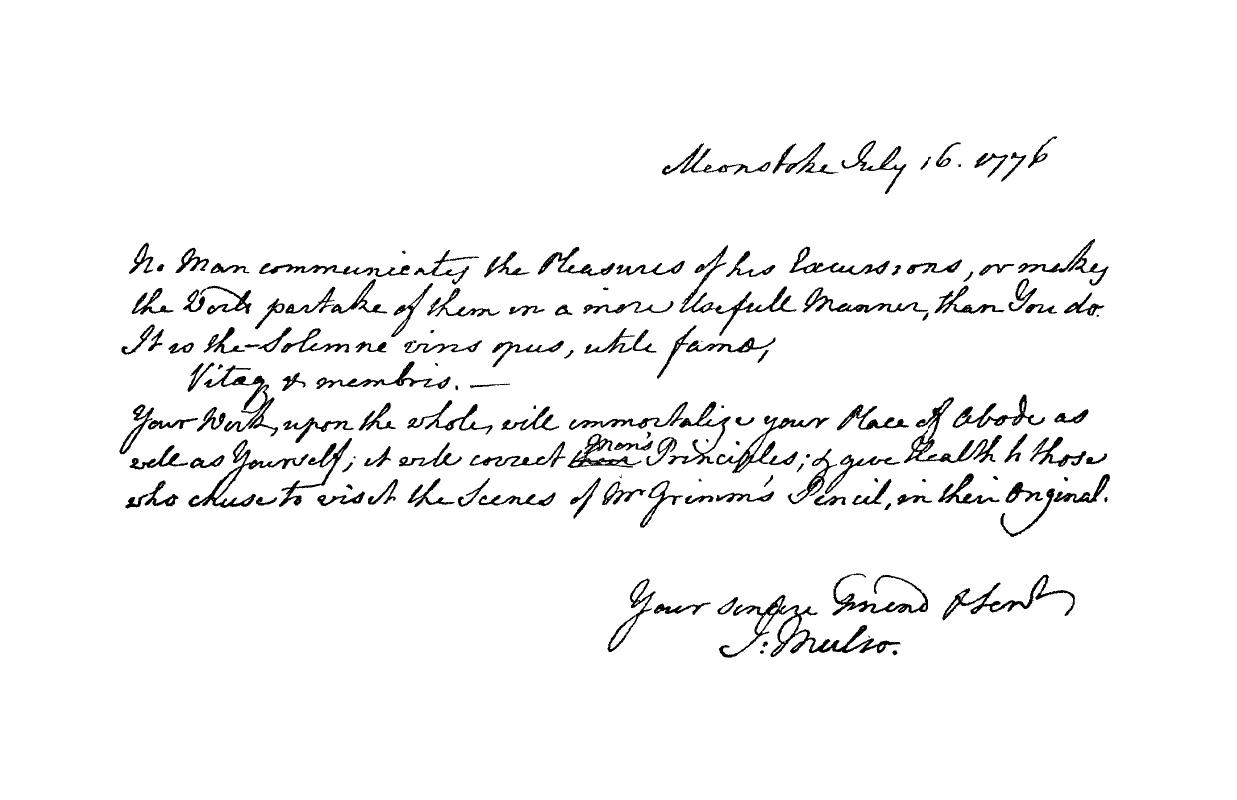 Meonstoke July 16. 1776
No Man communicates the Pleasures of his Excursions, or makes
the World partake of them in a more Usefull Manner, than You do.
It is the—Solemne viris opus, utile famæ,
Vitæq & membris. —
Your Work, upon the whole, will immortalize your Place of Abode as
well as Yourself; it will correct men's Principles; & give Health to those
who chuse to visit the Scenes of Mr Grimm's Pencil, in their Original.
Your sincere Friend & Servt
J: Mulso.